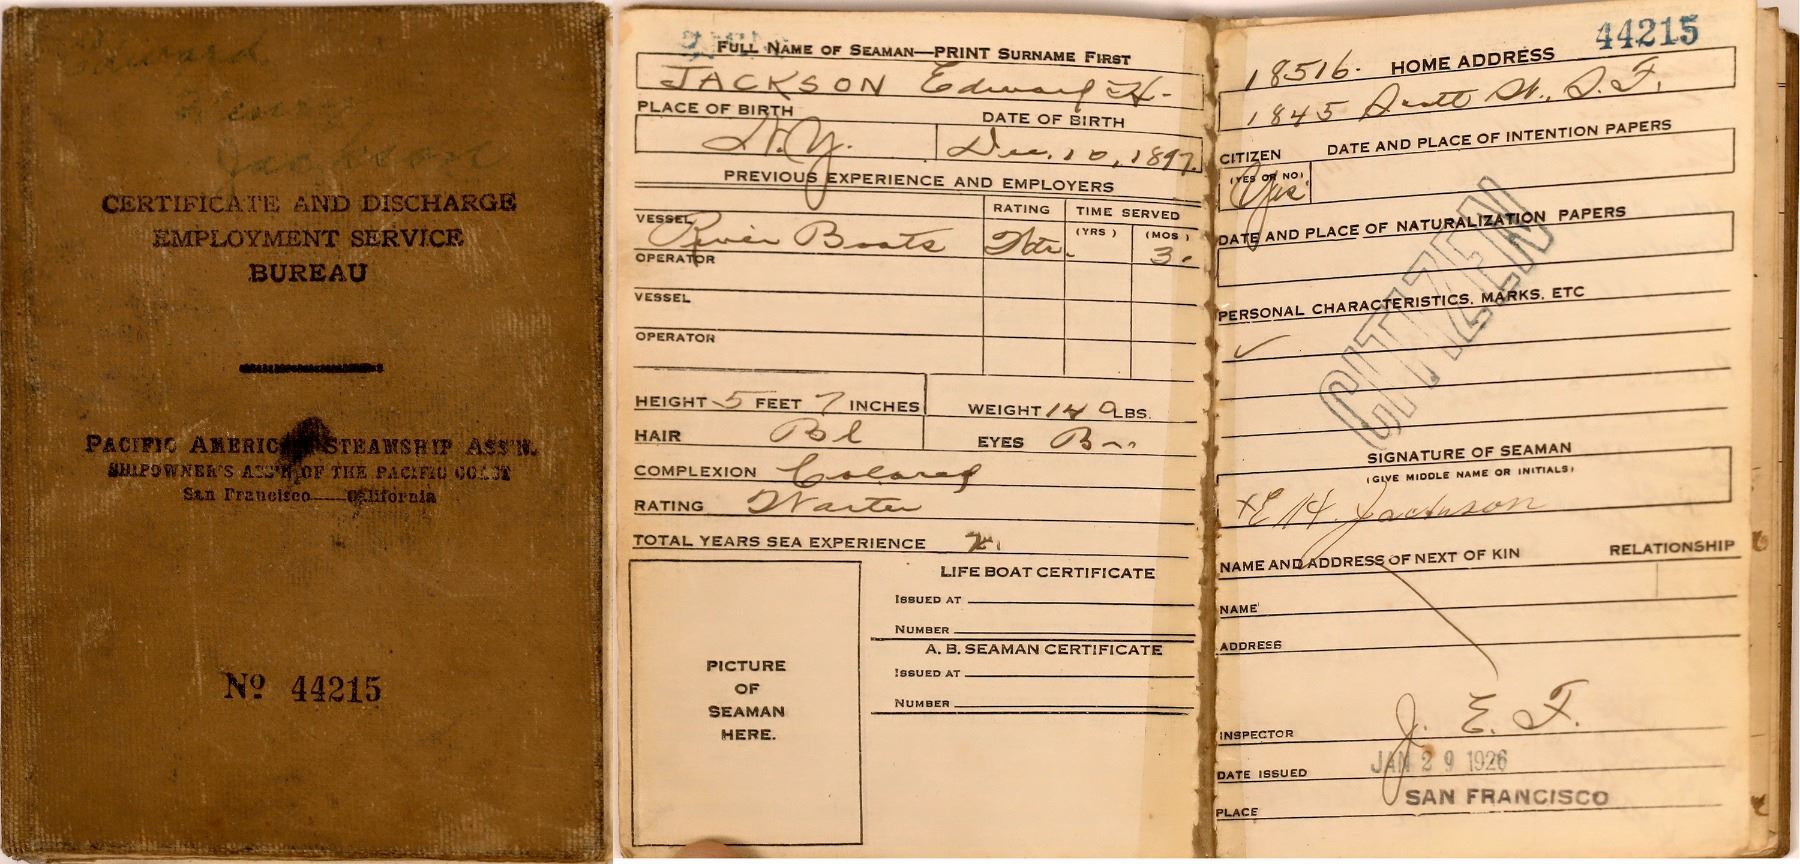 Edward
Henry
Jackson
CERTIFICATE AND DISCHARGE
EMPLOYMENT SERVICE
BUREAU
PACIFIC AMERICAN STEAMSHIP ASS'N.
SHIPOWNER'S ASS'N OF THE PACIFIC COAST
San Francisco——California
No 44215
FULL NAME OF SEAMAN—PRINT SURNAME FIRST
JACKSON Edward H.
PLACE OF BIRTH DATE OF BIRTH
N.Y. Dec. 10, 1897.
PREVIOUS EXPERIENCE AND EMPLOYERS
RATING TIME SERVED
VESSEL (YRS) (MOS)
River Boats Wtr. 3.
OPERATOR
VESSEL
OPERATOR
HEIGHT 5 FEET 7 INCHES WEIGHT 149 LBS.
HAIR Bl EYES Br
COMPLEXION Colored
RATING Waiter
TOTAL YEARS SEA EXPERIENCE
LIFE BOAT CERTIFICATE
ISSUED AT
NUMBER
A. B. SEAMAN CERTIFICATE
ISSUED AT
NUMBER
PICTURE
OF
SEAMAN
HERE.
44215
18516. HOME ADDRESS
1845 Scott St., S.F.
CITIZEN DATE AND PLACE OF INTENTION PAPERS
(YES OR NO)
Yes
DATE AND PLACE OF NATURALIZATION PAPERS
PERSONAL CHARACTERISTICS, MARKS, ETC
CITIZEN
SIGNATURE OF SEAMAN
(GIVE MIDDLE NAME OR INITIALS)
x E H. Jackson
NAME AND ADDRESS OF NEXT OF KIN RELATIONSHIP
NAME
ADDRESS
INSPECTOR J. E. F.
DATE ISSUED JAN 29 1926
PLACE SAN FRANCISCO